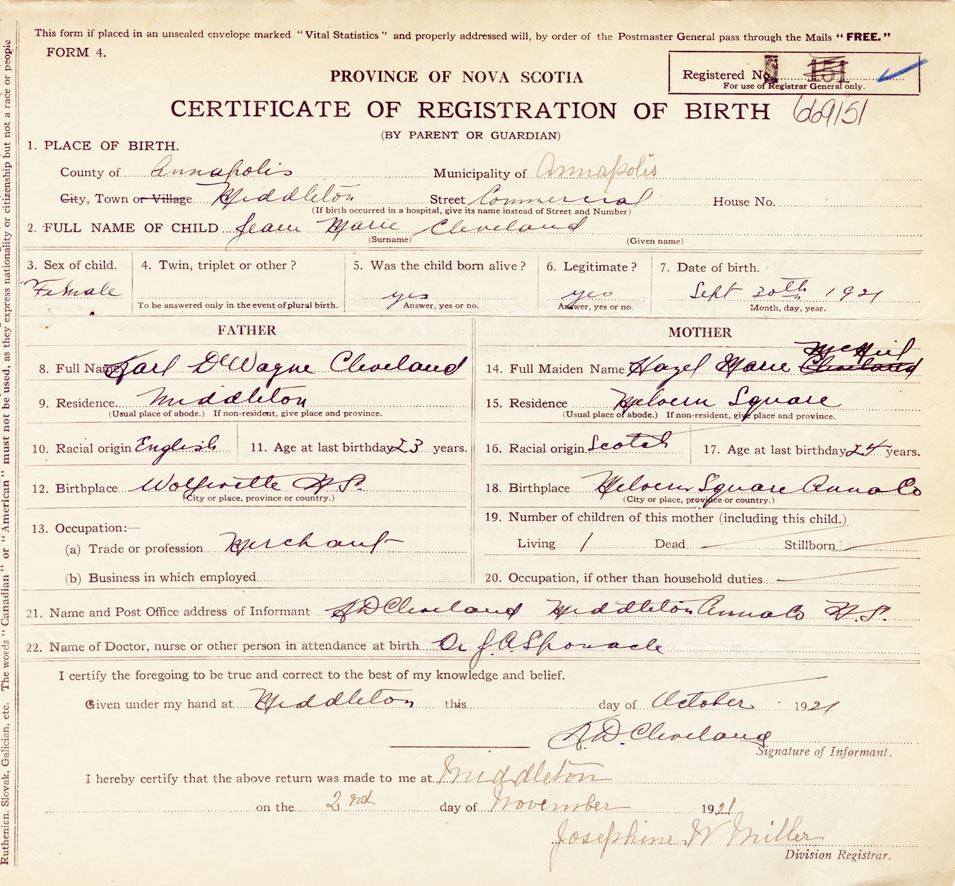 This form if placed in an unsealed envelope marked "Vital Statistics" and properly addressed will, by order of the Postmaster General pass through the Mails "FREE."
FORM 4.
Registered No. 151
For use of Registrar General only.
PROVINCE OF NOVA SCOTIA
CERTIFICATE OF REGISTRATION OF BIRTH 669151
(BY PARENT OR GUARDIAN)
1. PLACE OF BIRTH.
County of Annapolis Municipality of Annapolis
City, Town or Village Middleton Street Commercial House No.
(If birth occurred in a hospital, give its name instead of Street and Number)
2. FULL NAME OF CHILD Jean Marie Cleveland
(Surname) (Given name)
3. Sex of child. 4. Twin, triplet or other? 5. Was the child born alive? 6. Legitimate? 7. Date of birth.
Female yes yes Sept 20th 1921
To be answered only in the event of plural birth. Answer, yes or no. Answer, yes or no. Month, day, year.
FATHER
8. Full Name Karl DeWayne Cleveland
9. Residence Middleton
(Usual place of abode.) If non-resident, give place and province.
10. Racial origin English 11. Age at last birthday 23 years.
12. Birthplace Wolfville N.S.
(City or place, province or country.)
13. Occupation:—
(a) Trade or profession Merchant
(b) Business in which employed
MOTHER
14. Full Maiden Name Hazel Marie McNeil Cleveland
15. Residence Melvern Square
(Usual place of abode.) If non-resident, give place and province.
16. Racial origin Scotch 17. Age at last birthday 24 years.
18. Birthplace Melvern Square Anna Co
(City or place, province or country.)
19. Number of children of this mother (including this child.)
Living 1 Dead — Stillborn —
20. Occupation, if other than household duties —
21. Name and Post Office address of Informant K D Cleveland Middleton Anna Co N.S.
22. Name of Doctor, nurse or other person in attendance at birth Dr J.A. Sponagle
I certify the foregoing to be true and correct to the best of my knowledge and belief.
Given under my hand at Middleton this day of October 1921
K.D. Cleveland
Signature of Informant.
I hereby certify that the above return was made to me at Middleton
on the 2nd day of November 1921
Josephine W Miller
Division Registrar.
Ruthenien, Slovak, Galician, etc. The words "Canadian" or "American" must not be used, as they express nationality or citizenship but not a race or people